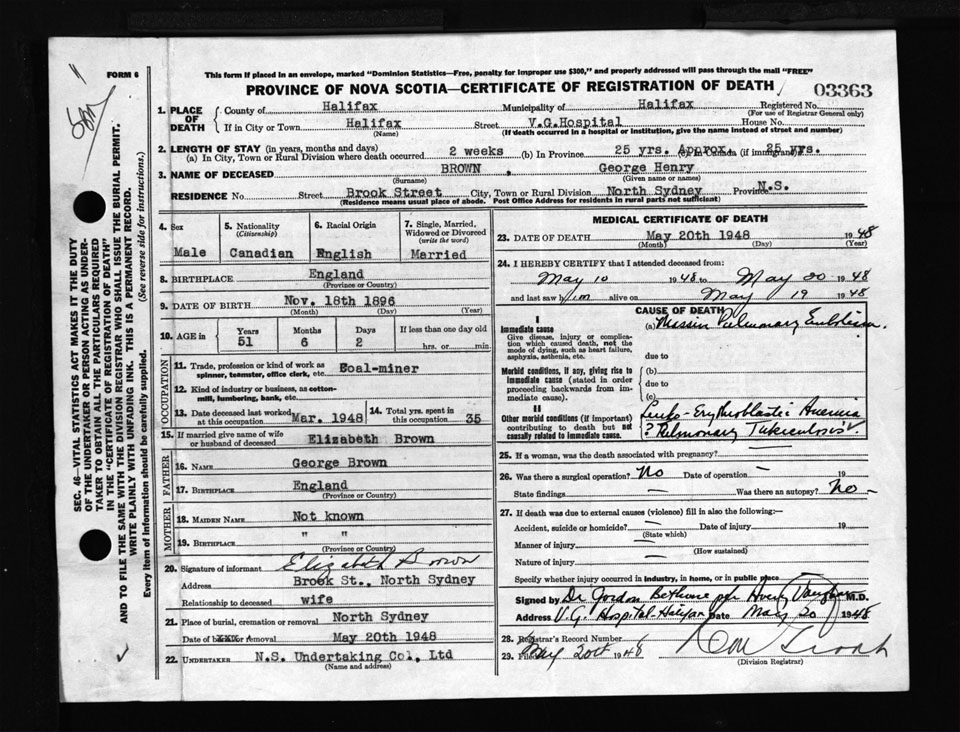 FORM 6
This form if placed in an envelope, marked "Dominion Statistics—Free, penalty for improper use $300," and properly addressed will pass through the mail "FREE"
PROVINCE OF NOVA SCOTIA—CERTIFICATE OF REGISTRATION OF DEATH
03363
1. PLACE OF DEATH
County of Halifax Municipality of Halifax Registered No.
(For use of Registrar General only)
If in City or Town Halifax Street V.G.Hospital House No.
(Name) (If death occurred in a hospital or institution, give the name instead of street and number)
2. LENGTH OF STAY (in years, months and days)
(a) In City, Town or Rural Division where death occurred 2 weeks (b) In Province 25 yrs. Approx. (c) In Canada (if immigrant) 25 yrs.
3. NAME OF DECEASED BROWN , George Henry
(Surname) (Given name or names)
RESIDENCE No. Street Brook Street City, Town or Rural Division North Sydney Province N.S.
(Residence means usual place of abode. Post Office Address for residents in rural parts not sufficient)
4. Sex Male
5. Nationality (Citizenship) Canadian
6. Racial Origin English
7. Single, Married, Widowed or Divorced (write the word) Married
8. BIRTHPLACE England
(Province or Country)
9. DATE OF BIRTH Nov. 18th 1896
(Month) (Day) (Year)
10. AGE in Years Months Days If less than one day old
51 6 2 hrs. or min.
OCCUPATION
11. Trade, profession or kind of work as spinner, teamster, office clerk, etc. Eoal-miner
12. Kind of industry or business, as cotton-mill, lumbering, bank, etc.
13. Date deceased last worked at this occupation Mar. 1948 14. Total yrs. spent in this occupation 35
15. If married give name of wife or husband of deceased Elizabeth Brown
FATHER
16. NAME George Brown
17. BIRTHPLACE England
(Province or Country)
MOTHER
18. MAIDEN NAME Not known
19. BIRTHPLACE " "
(Province or Country)
20. Signature of informant Elizabeth Brown
Address Brook St., North Sydney
Relationship to deceased wife
21. Place of burial, cremation or removal North Sydney
Date of removal May 20th 1948
22. UNDERTAKER N.S. Undertaking Co., Ltd
(Name and address)
MEDICAL CERTIFICATE OF DEATH
23. DATE OF DEATH May 20th 1948 1948
(Month) (Day) (Year)
24. I HEREBY CERTIFY that I attended deceased from:
May 10 1948 to May 20 1948
and last saw him alive on May 19 1948
CAUSE OF DEATH
I
Immediate cause (a) Massive Pulmonary Embolism.
Give disease, injury or complication which caused death, not the mode of dying, such as heart failure, asphyxia, asthenia, etc.
due to
Morbid conditions, if any, giving rise to immediate cause (stated in order proceeding backwards from immediate cause).
(b)
due to
(c)
II
Other morbid conditions (if important) contributing to death but not causally related to immediate cause.
Leuko-Erythroblastic Anemia
? Pulmonary Tuberculosis
25. If a woman, was the death associated with pregnancy?
26. Was there a surgical operation? No Date of operation — 19
State findings — Was there an autopsy? No —
27. If death was due to external causes (violence) fill in also the following:—
Accident, suicide or homicide? — Date of injury 19
(State which)
Manner of injury —
(How sustained)
Nature of injury —
Specify whether injury occurred in industry, in home, or in public place
Signed by Dr Gordon Bethune per M.D.
Address V.G. Hospital Halifax Date May 20 1948
28. Registrar's Record Number
29. Filed May 20th 1948
(Division Registrar)
SEC. 46—VITAL STATISTICS ACT MAKES IT THE DUTY
OF THE UNDERTAKER OR PERSON ACTING AS UNDER-
TAKER TO OBTAIN ALL THE PARTICULARS REQUIRED
IN THE "CERTIFICATE OF REGISTRATION OF DEATH"
AND TO FILE THE SAME WITH THE DIVISION REGISTRAR WHO SHALL ISSUE THE BURIAL PERMIT.
WRITE PLAINLY WITH UNFADING INK. THIS IS A PERMANENT RECORD.
Every item of information should be carefully supplied. (See reverse side for instructions.)